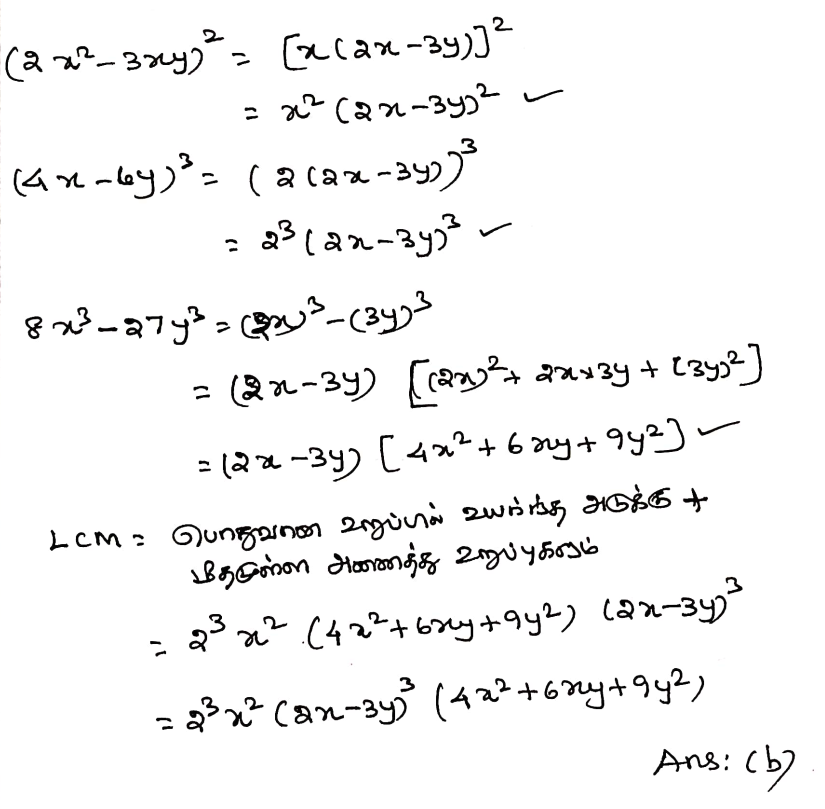 (2x²-3xy)² = [x(2x-3y)]²
= x² (2x-3y)² ✓
(4x-6y)³ = (2(2x-3y))³
= 2³ (2x-3y)³ ✓
8x³-27y³ = (2x)³-(3y)³
= (2x-3y) [(2x)²+ 2x×3y + (3y)²]
= (2x-3y) [4x²+6xy+9y²] ✓
LCM = பொதுவான உறுப்பில் உயர்ந்த அடுக்கு +
மீதமுள்ள அனைத்து உறுப்புகளும்
= 2³ x² (4x²+6xy+9y²) (2x-3y)³
= 2³x² (2x-3y)³ (4x²+6xy+9y²)
Ans: (b)